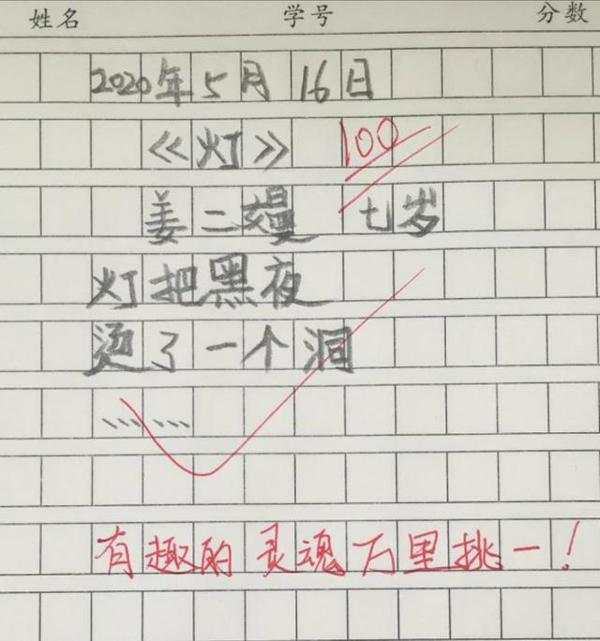 姓名 学号 分数
2020年5月16日
《灯》 100
姜二嫚 七岁
灯把黑夜
烫了一个洞
……
有趣的灵魂万里挑一！